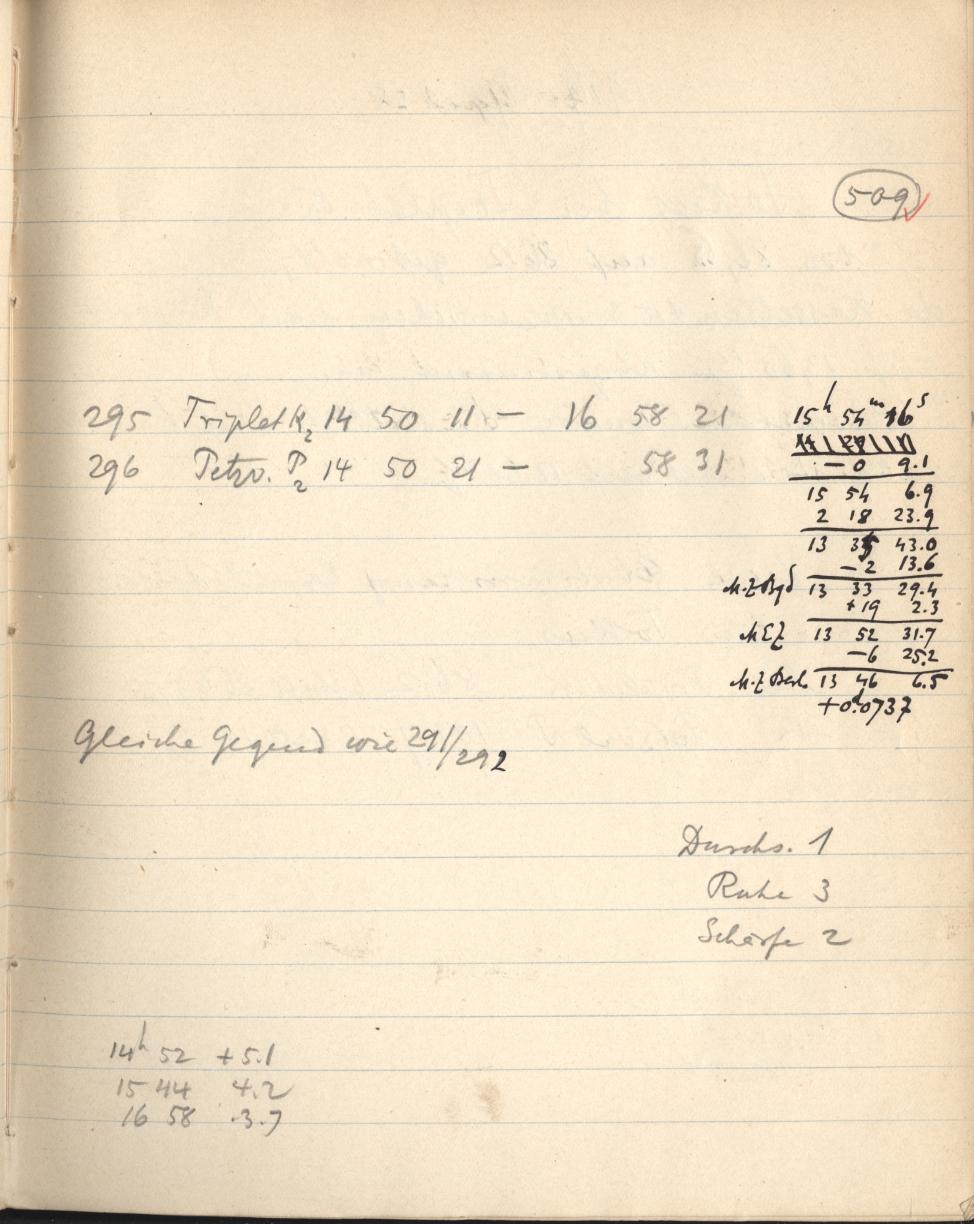 509
295 Triplet K2 14 50 11 — 16 58 21
296 Petzv. P2 14 50 21 — 58 31
15h 54m 16s
— 0 9.1
15 54 6.9
2 18 23.9
13 35 43.0
—2 13.6
M.Z Bgd 13 33 29.4
+19 2.3
MEZ 13 52 31.7
—6 25.2
M.Z Berl. 13 46 6.5
+0d.0737
Gleiche Gegend wie 291/292
Durchs. 1
Ruhe 3
Schärfe 2
14h 52 +5.1
15 44 4.2
16 58 .3.7